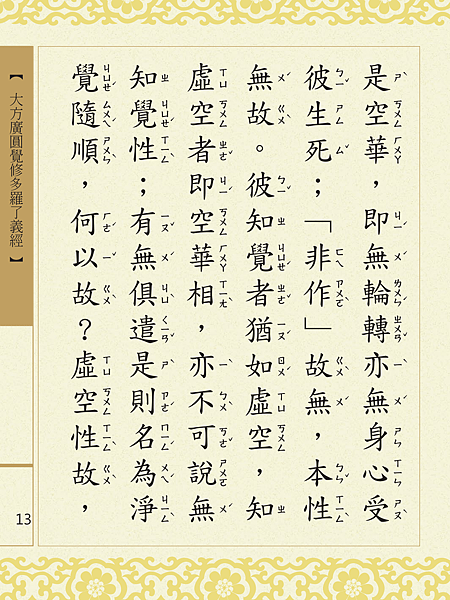 是空華，即無輪轉亦無身心受
彼生死；「非作」故無，本性
無故。彼知覺者猶如虛空，知
虛空者即空華相，亦不可說無
知覺性；有無俱遣是則名為淨
覺隨順，何以故？虛空性故，
【大方廣圓覺修多羅了義經】
13